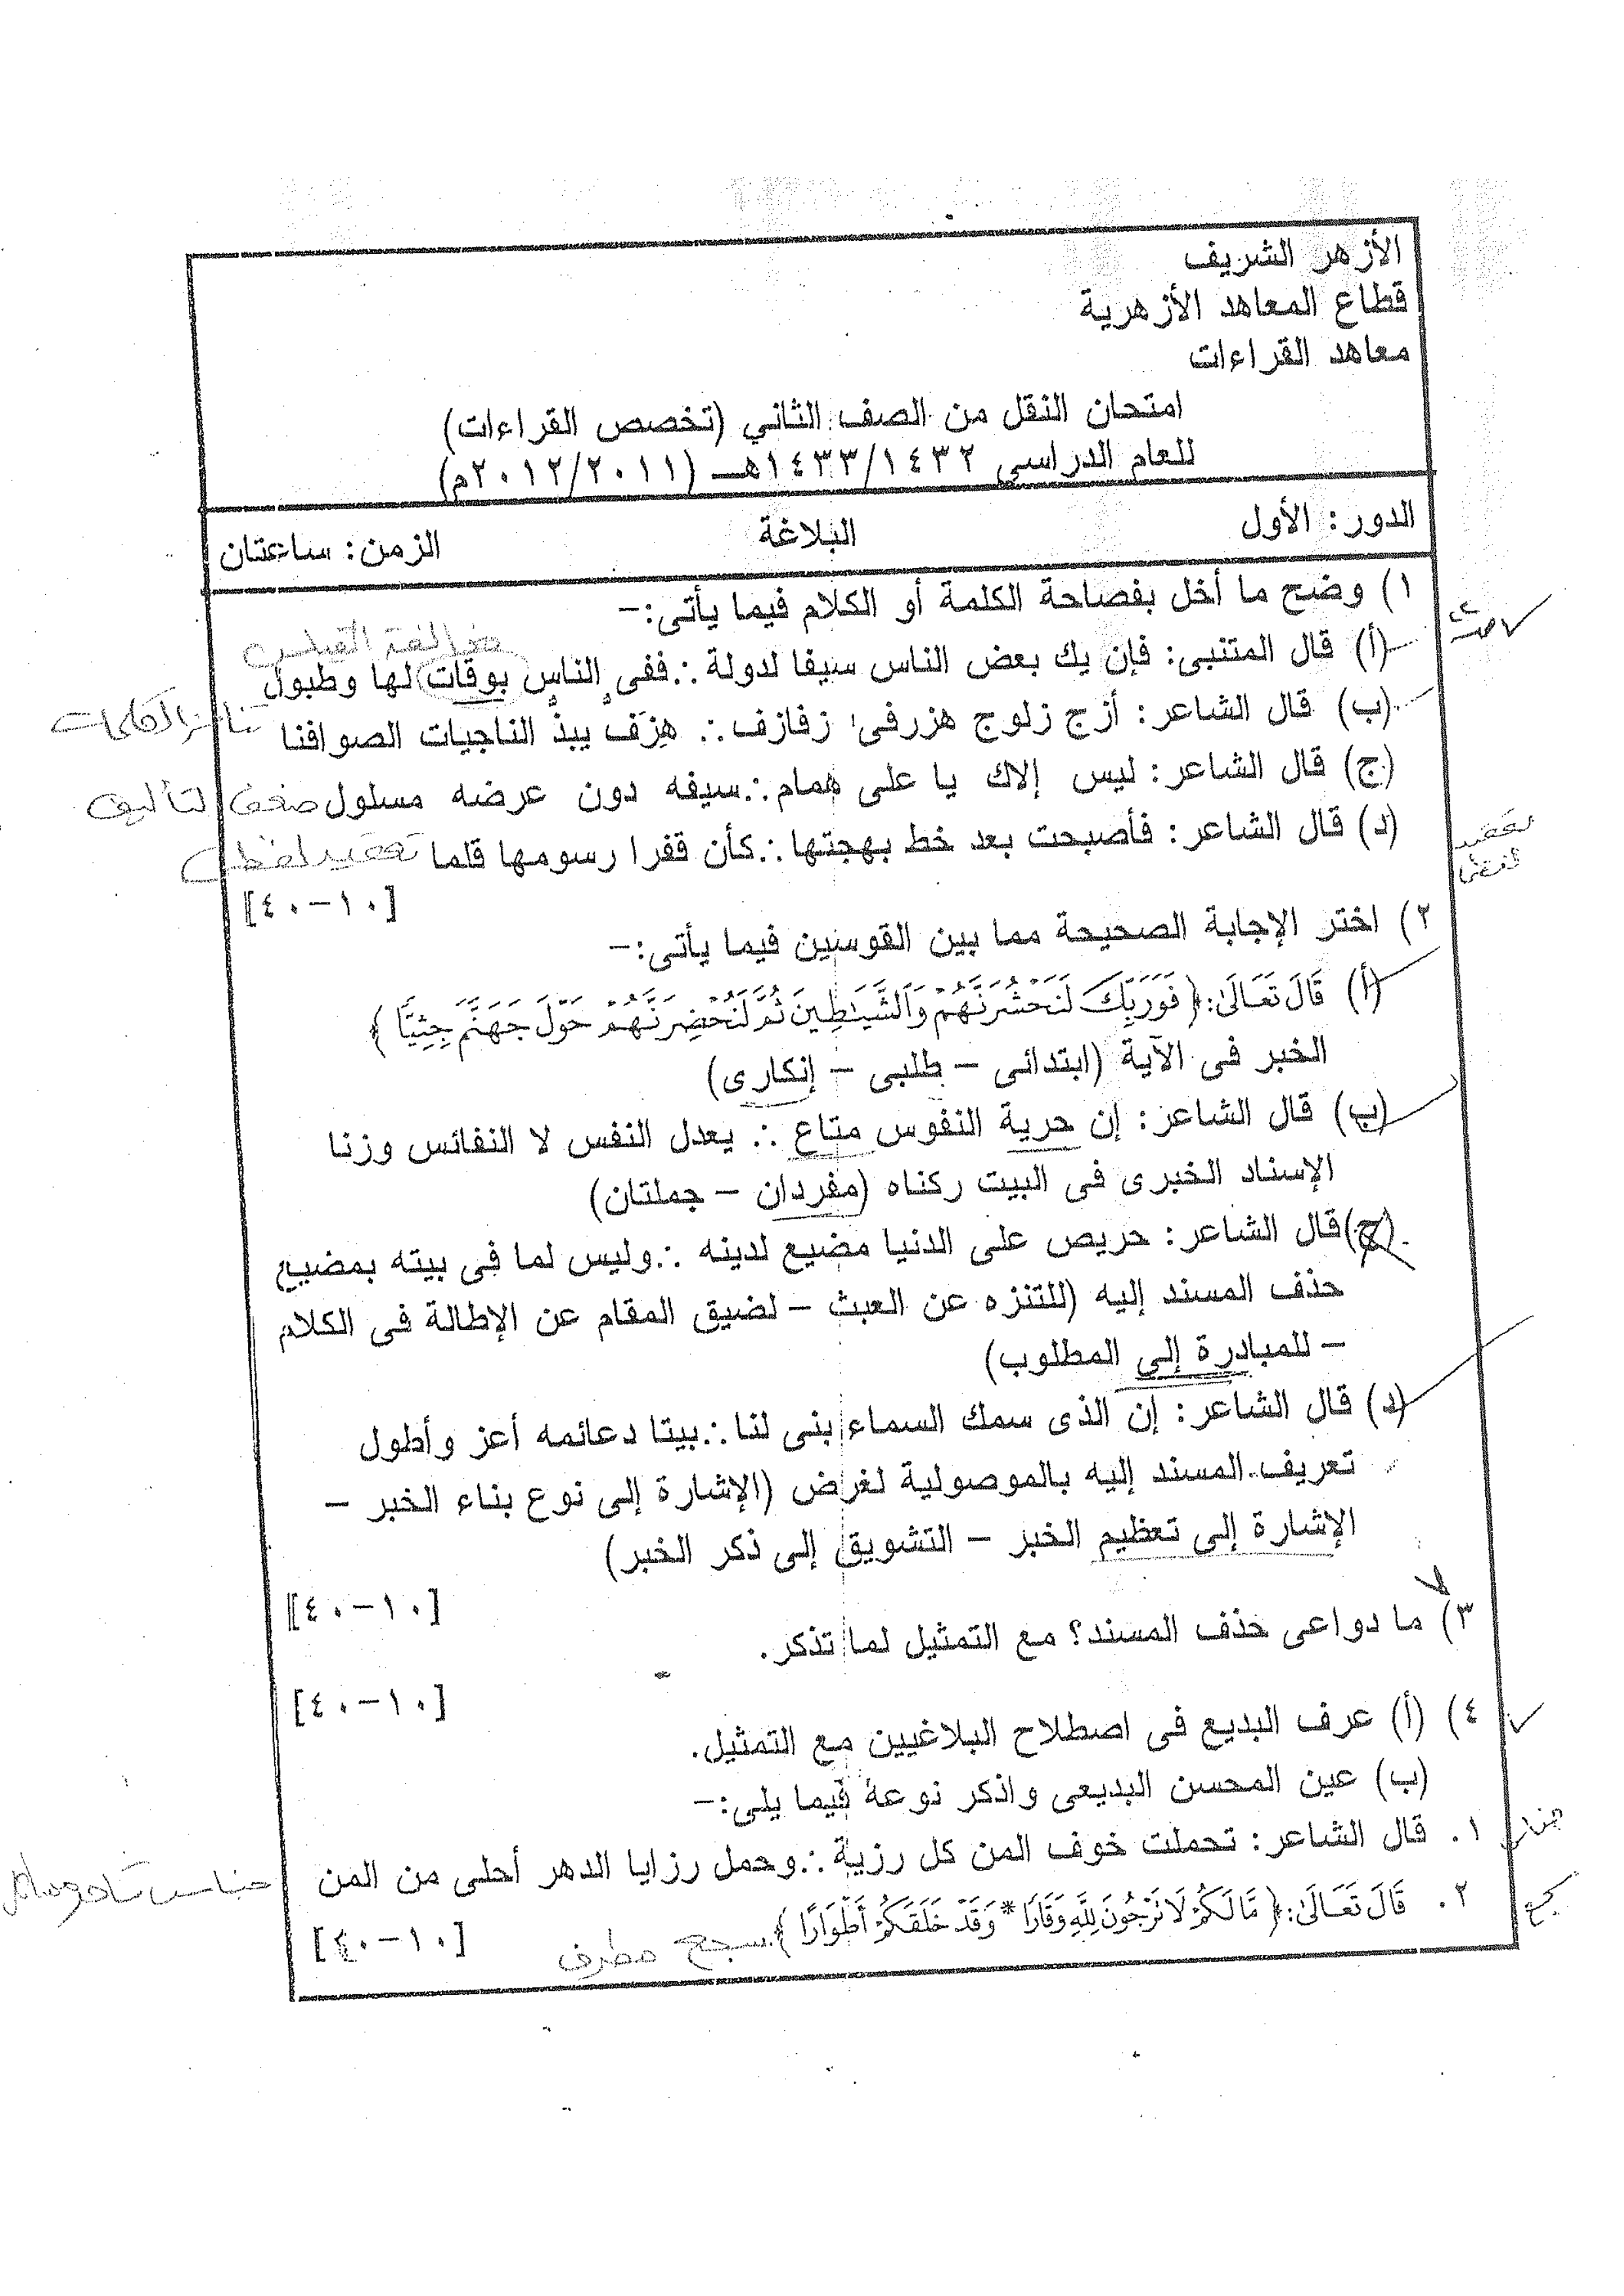 الأزهر الشريف
قطاع المعاهد الأزهرية
معاهد القراءات
امتحان النقل من الصف الثاني (تخصص القراءات)
للعام الدراسي ١٤٣٣/١٤٣٢هـ (٢٠١٢/٢٠١١م)
الدور: الأول البلاغة الزمن: ساعتان
١) وضح ما أخل بفصاحة الكلمة أو الكلام فيما يأتى:-
مخالفة القياس
(أ) قال المتنبى: فإن يك بعض الناس سيفا لدولة ∴ ففى الناس بوقات لها وطبول
(ب) قال الشاعر: أزج زلوج هزرفى زفازف ∴ هِزَفٌ يبذُّ الناجيات الصوافنا تنافر الكلمات
(ج) قال الشاعر: ليس إلاك يا على همام ∴ سيفه دون عرضه مسلول ضعف التأليف
(د) قال الشاعر: فأصبحت بعد خط بهجتها ∴ كأن قفرا رسومها قلما تعقيد لفظى
تعقيد
لفظى
[١٠-٤٠]
٢) اختر الإجابة الصحيحة مما بين القوسين فيما يأتى:-
(أ) قَالَ تَعَالَىٰ: ﴿ فَوَرَبِّكَ لَنَحْشُرَنَّهُمْ وَٱلشَّيَٰطِينَ ثُمَّ لَنُحْضِرَنَّهُمْ حَوْلَ جَهَنَّمَ جِثِيًّا ﴾
الخبر فى الآية (ابتدائى - طلبى - إنكارى)
(ب) قال الشاعر: إن حرية النفوس متاع ∴ يعدل النفس لا النفائس وزنا
الإسناد الخبرى فى البيت ركناه (مفردان - جملتان)
(ج) قال الشاعر: حريص على الدنيا مضيع لدينه ∴ وليس لما فى بيته بمضيع
حذف المسند إليه (للتنزه عن العبث - لضيق المقام عن الإطالة فى الكلام
- للمبادرة إلى المطلوب)
(د) قال الشاعر: إن الذى سمك السماء بنى لنا ∴ بيتا دعائمه أعز وأطول
تعريف المسند إليه بالموصولية لغرض (الإشارة إلى نوع بناء الخبر -
الإشارة إلى تعظيم الخبر - التشويق إلى ذكر الخبر)
[١٠-٤٠]
٣) ما دواعى حذف المسند؟ مع التمثيل لما تذكر.
[١٠-٤٠]
٤) (أ) عرف البديع فى اصطلاح البلاغيين مع التمثيل.
(ب) عين المحسن البديعى واذكر نوعه فيما يلى:-
١. قال الشاعر: تحملت خوف المن كل رزية ∴ وحمل رزايا الدهر أحلى من المن جناس تام
٢. قَالَ تَعَالَىٰ: ﴿ مَّا لَكُمْ لَا تَرْجُونَ لِلَّهِ وَقَارًا * وَقَدْ خَلَقَكُمْ أَطْوَارًا ﴾ سجع مطرف
سجع
[١٠-٤٠]